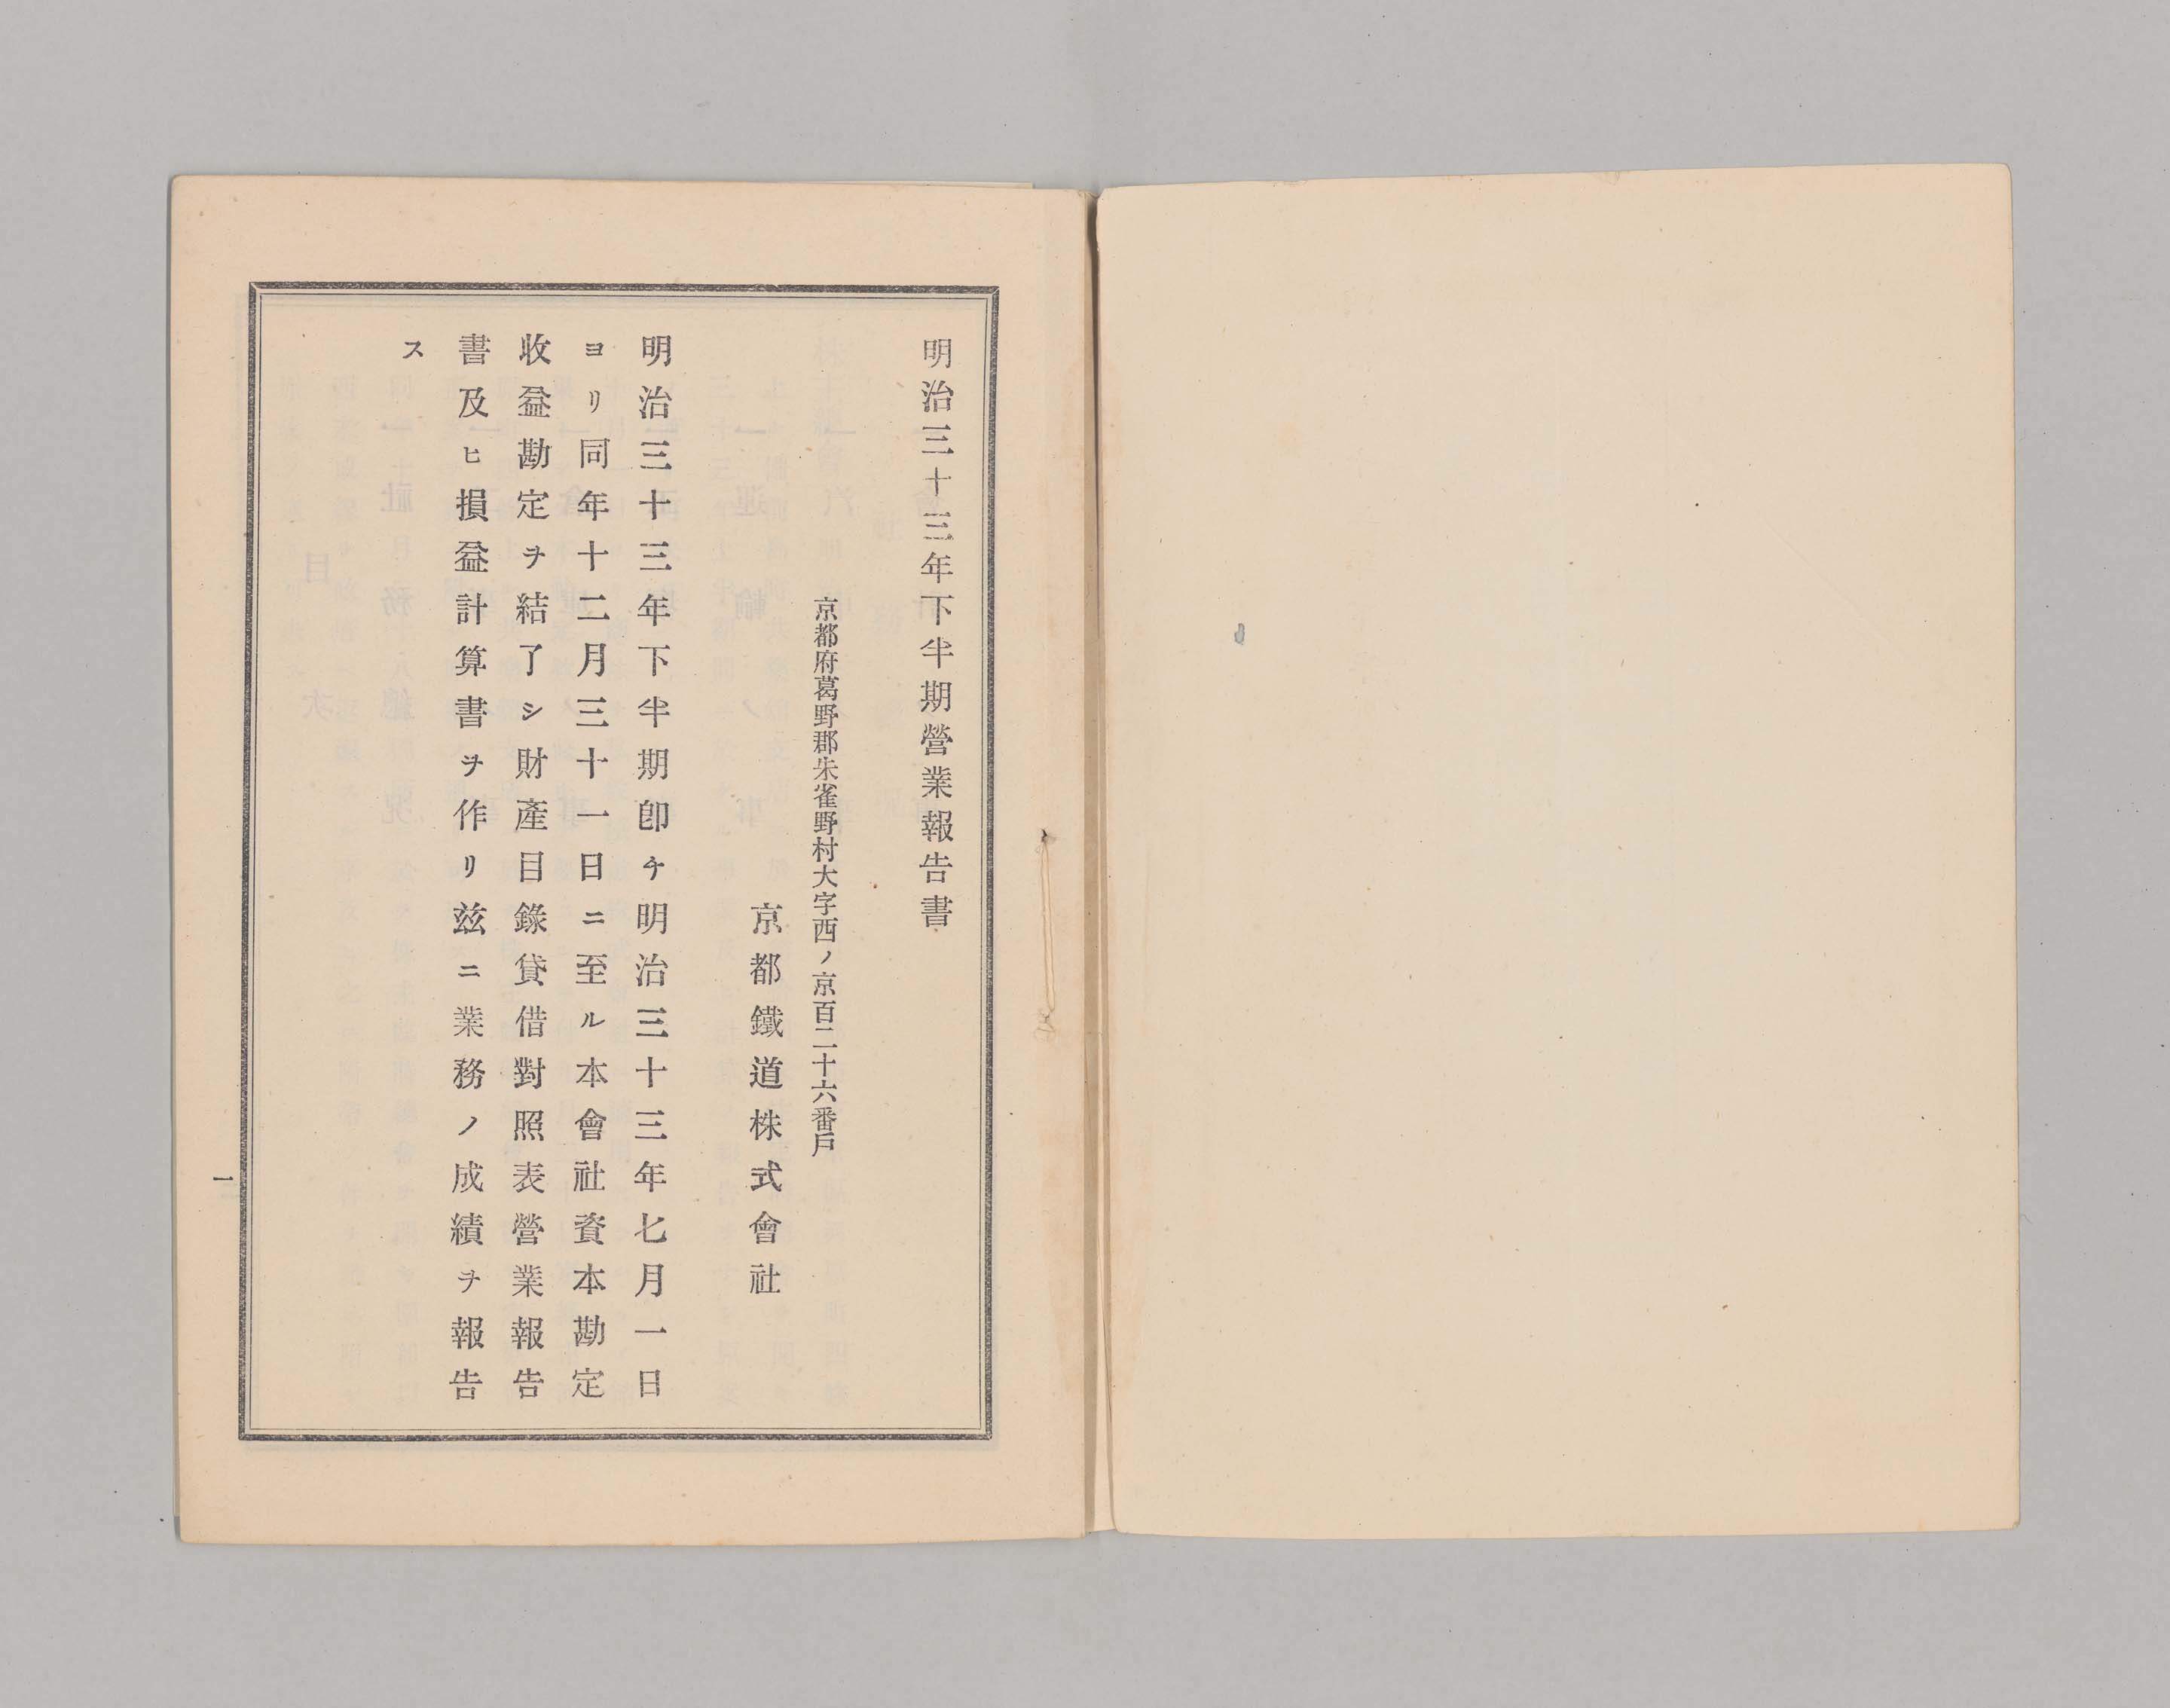 明治三十三年下半期營業報告書
京都府葛野郡朱雀野村大字西ノ京百二十六番戶
京都鐵道株式會社
明治三十三年下半期卽チ明治三十三年七月一日
ヨリ同年十二月三十一日ニ至ル本會社資本勘定
收益勘定ヲ結了シ財產目錄貸借對照表營業報告
書及ヒ損益計算書ヲ作リ玆ニ業務ノ成績ヲ報告
ス
一